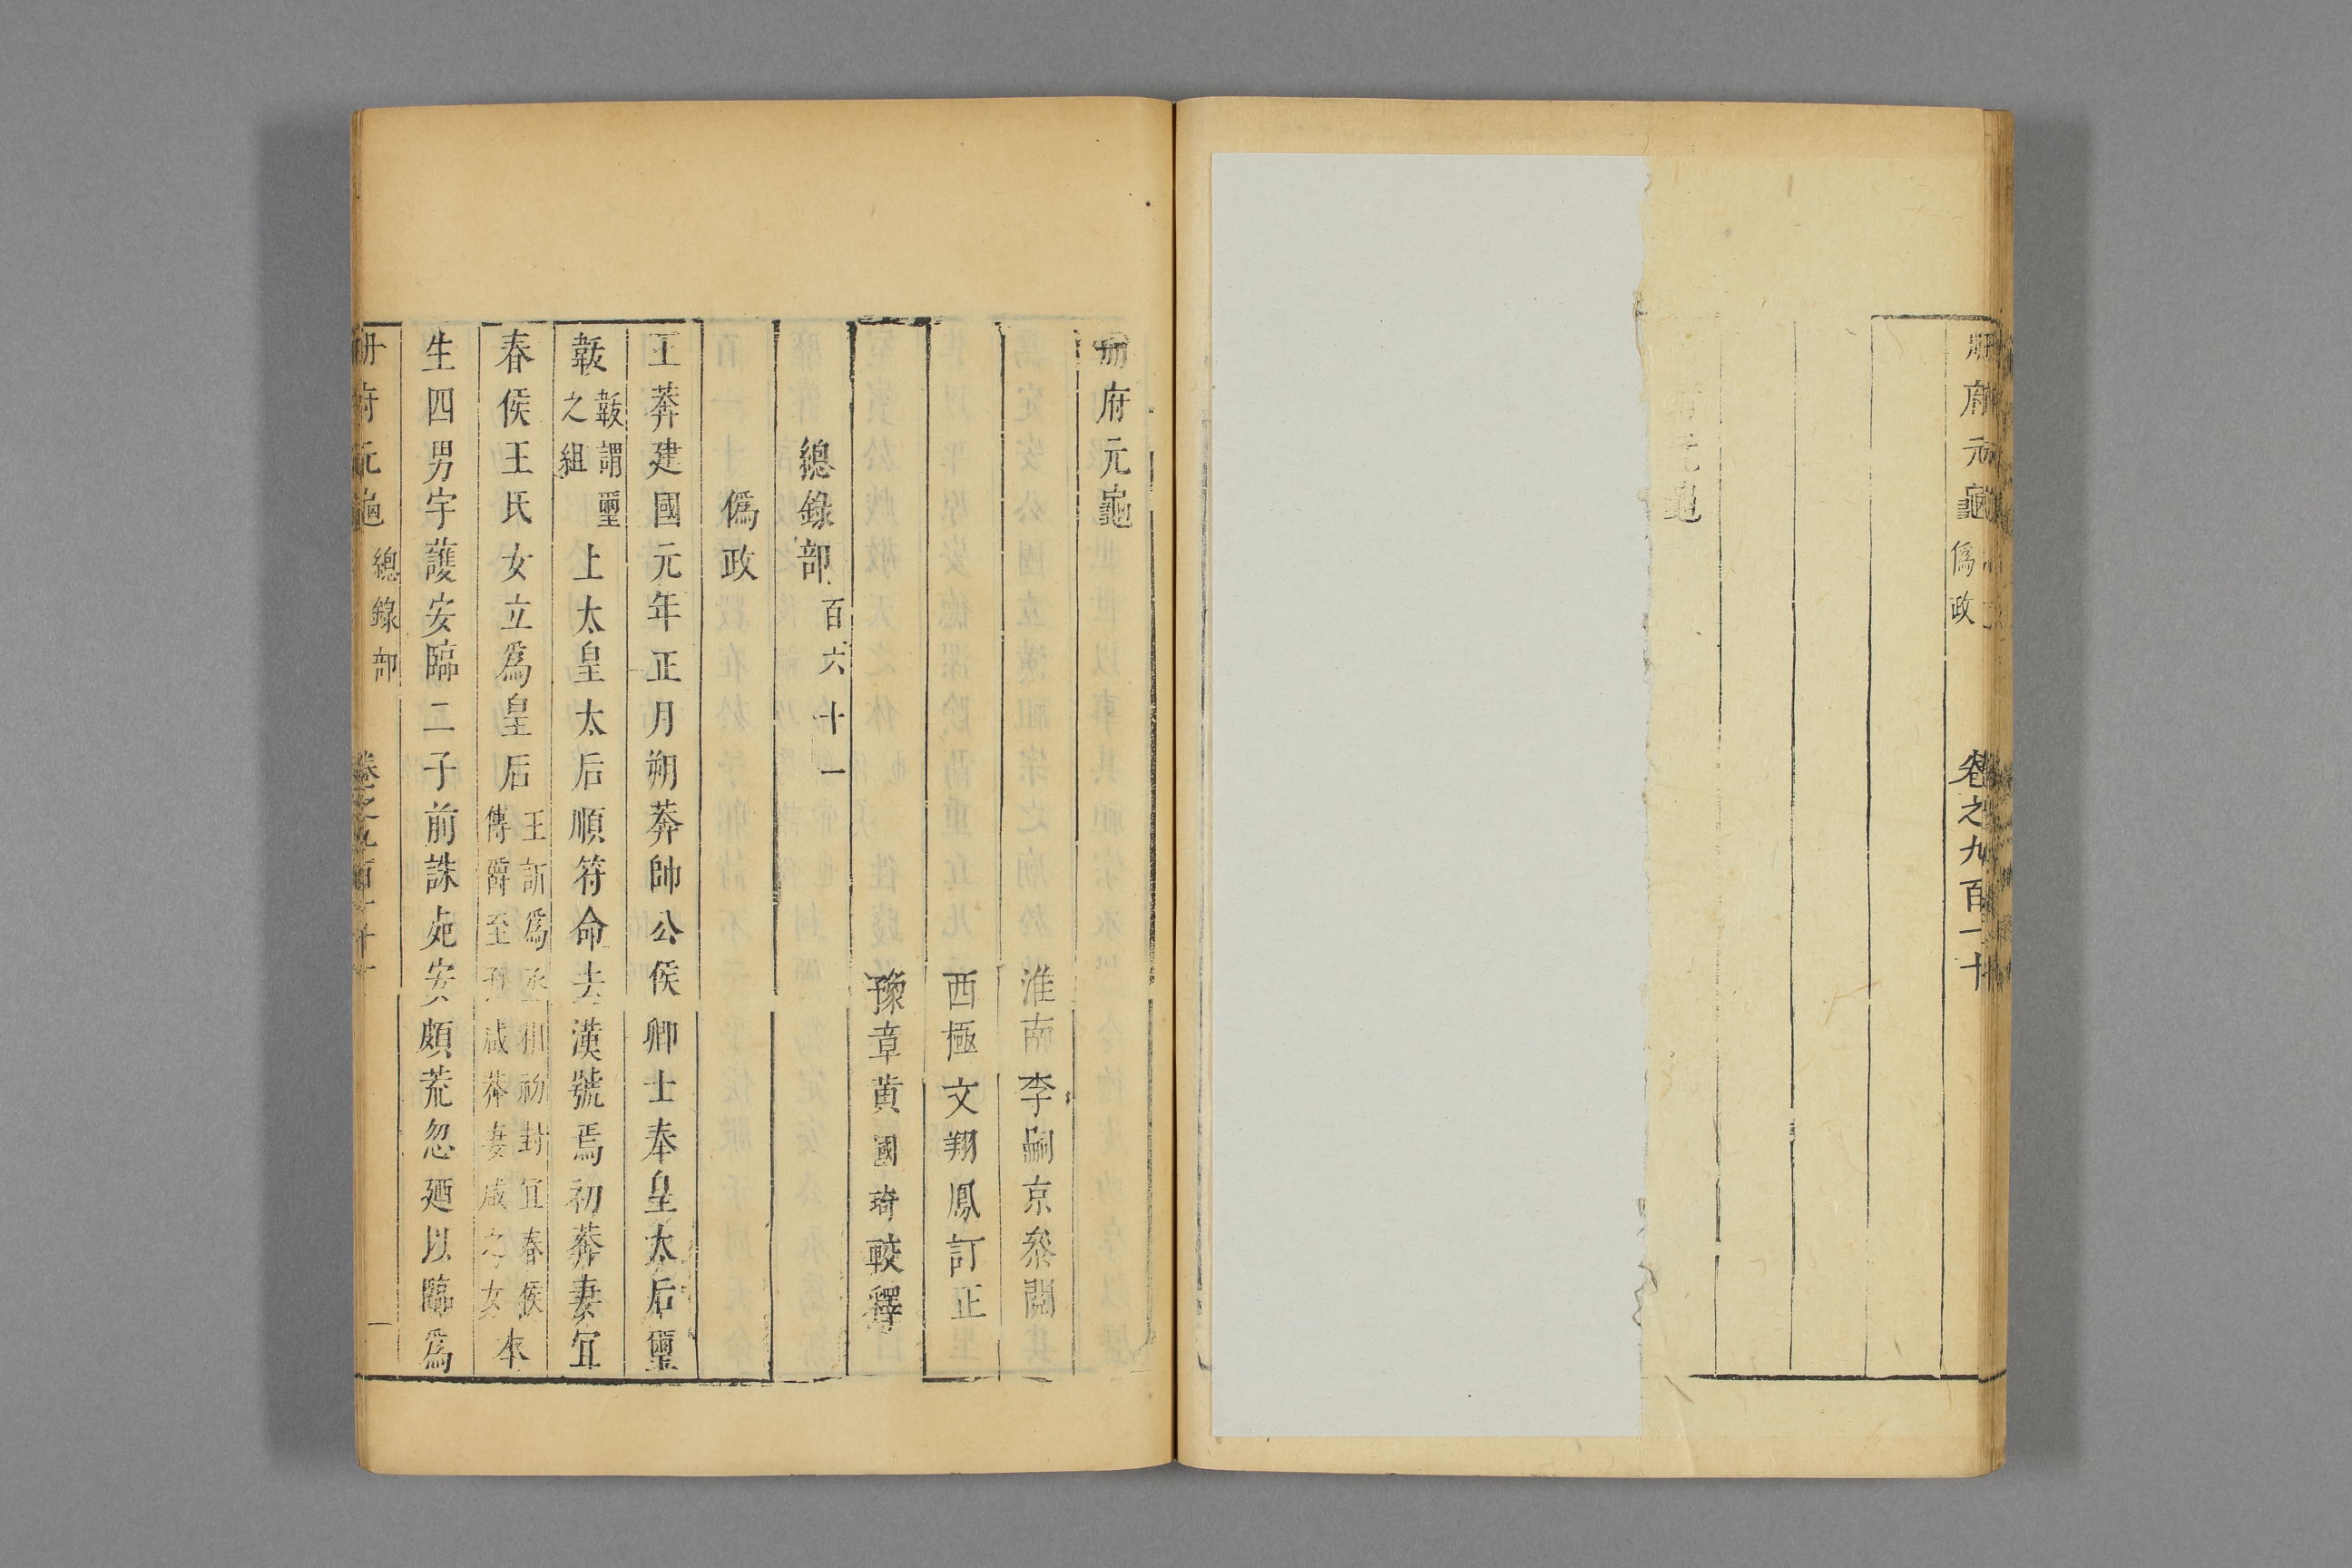 册府元龜 僞政 卷之九百一十
元龜
册府元龜
淮南李嗣京參閱
西極文翔鳳訂正
豫章黄國琦較釋
總錄部 百六十一
僞政
王莽建國元年正月朔莽帥公侯卿士奉皇太后璽
韍 韍謂璽之組 上太皇太后順符命去漢號焉初莽妻宜
春侯王氏女立爲皇后 王訢爲丞相初封宜春侯傳爵至孫咸莽妻咸之女 本
生四男宇䕶安臨二子前誅死安頗荒忽廼以臨爲
册府元龜 總錄部 卷之九百一十 一